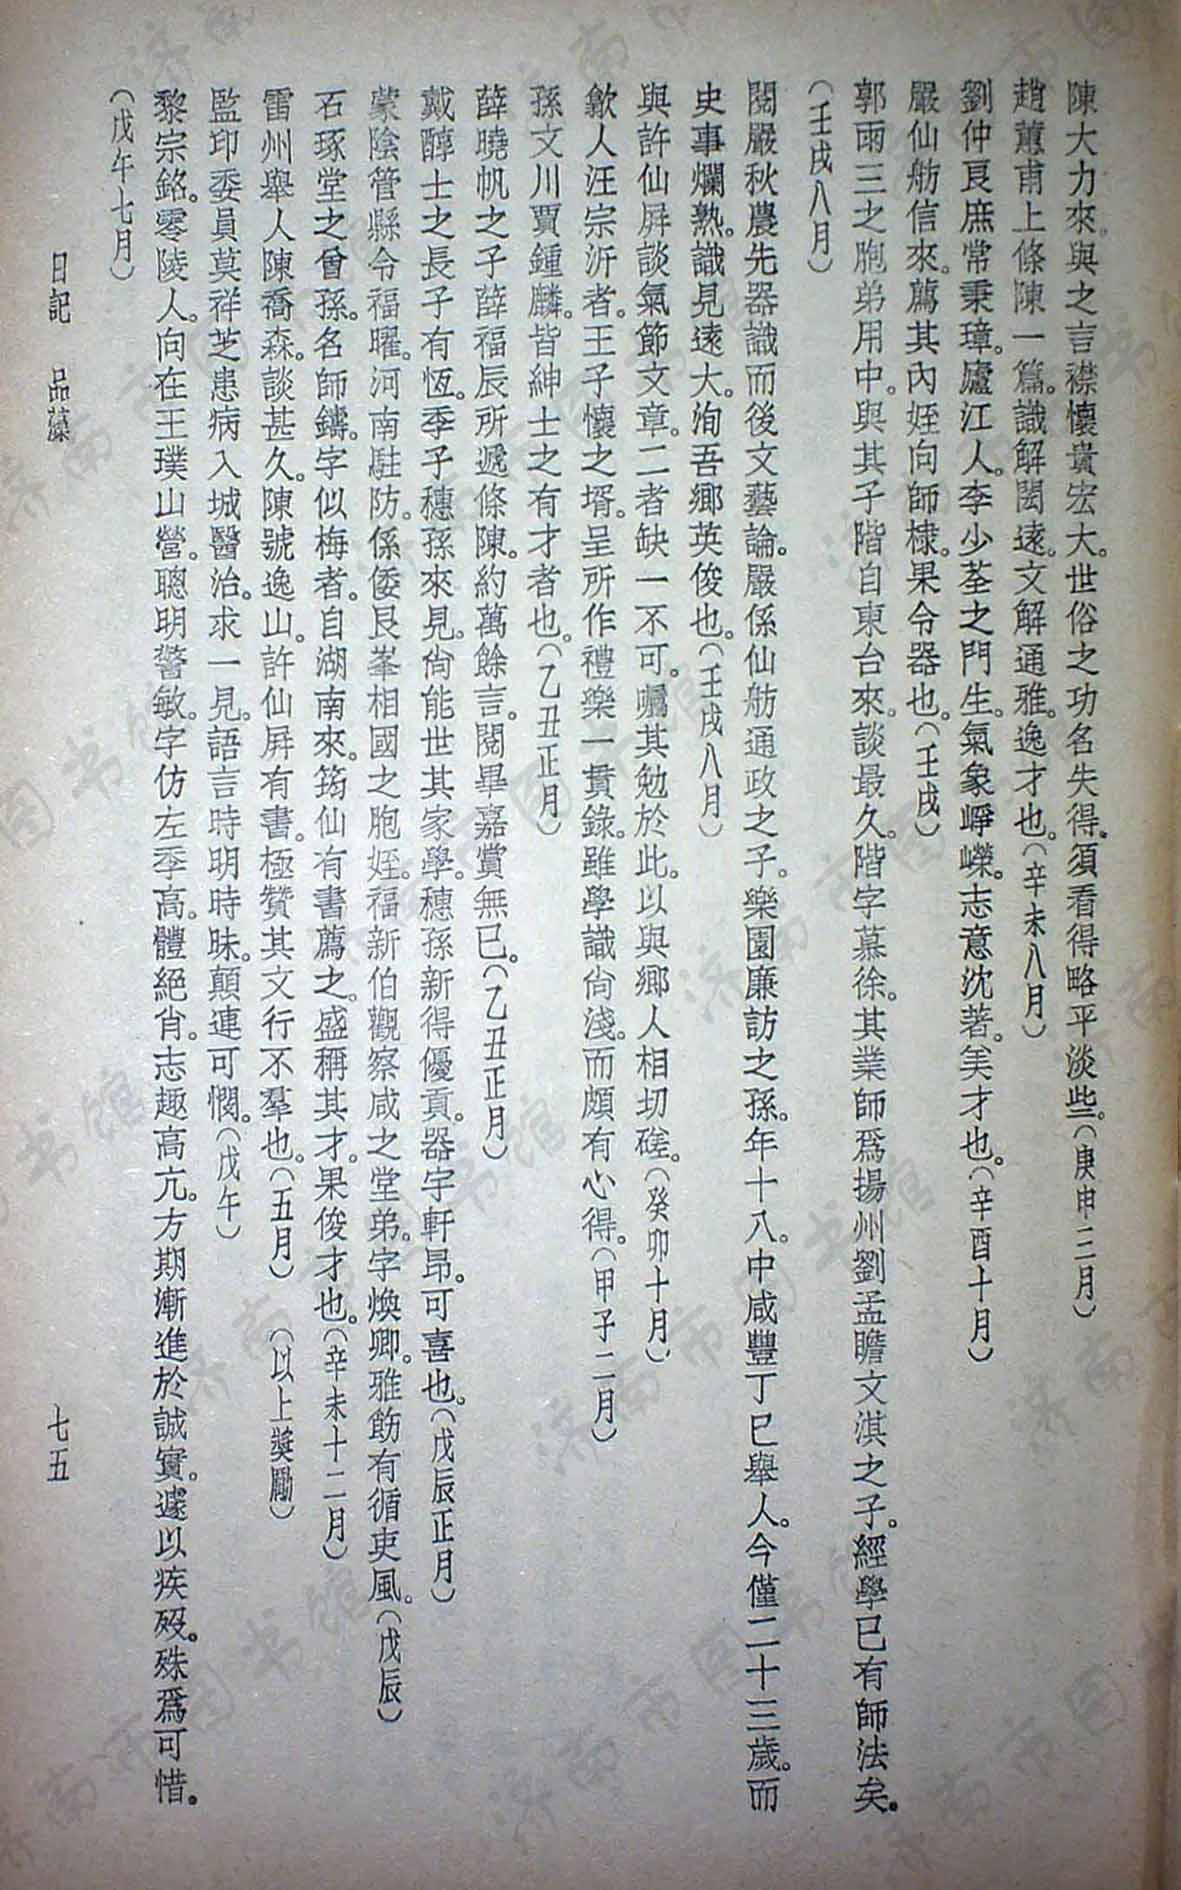 陳大力來。與之言襟懷貴宏大。世俗之功名失得。須看得略平淡些。(庚申二月)
趙蕙甫上條陳一篇。識解閎遠。文解通雅。逸才也。(辛未八月)
劉仲良庶常秉璋。廬江人。李少荃之門生。氣象崢嶸。志意沈著。美才也。(辛酉十月)
嚴仙舫信來。薦其內姪向師棣。果令器也。(壬戌)
郭雨三之胞弟用中。與其子階自東台來。談最久。階字慕徐。其業師爲揚州劉孟瞻文淇之子。經學已有師法矣。
(壬戌八月)
閱嚴秋農先器識而後文藝論。嚴係仙舫通政之子。樂園廉訪之孫。年十八。中咸豐丁巳舉人。今僅二十三歲。而
史事爛熟。識見遠大。洵吾鄉英俊也。(壬戌八月)
與許仙屏談氣節文章。二者缺一不可。囑其勉於此。以與鄉人相切磋。(癸卯十月)
歙人汪宗沂者。王子懷之壻。呈所作禮樂一貫錄。雖學識尙淺。而頗有心得。(甲子二月)
孫文川賈鍾麟。皆紳士之有才者也。(乙丑正月)
薛曉帆之子薛福辰所遞條陳。約萬餘言。閱畢嘉賞無已。(乙丑正月)
戴醇士之長子有恆。季子穗孫來見。尙能世其家學。穗孫新得優貢。器宇軒昂。可喜也。(戊辰正月)
蒙陰管縣令福曜。河南駐防。係倭艮峯相國之胞姪。福新伯觀察咸之堂弟。字煥卿。雅飭有循吏風。(戊辰)
石琢堂之曾孫。名師鑄。字似梅者。自湖南來。筠仙有書薦之。盛稱其才。果俊才也。(辛未十二月)
雷州舉人陳喬森。談甚久。陳號逸山。許仙屏有書。極贊其文行不羣也。(五月) (以上獎勵)
監印委員莫祥芝患病入城醫治。求一見。語言時明時昧。顛連可憫。(戊午)
黎宗銘。零陵人。向在王璞山營。聰明警敏。字仿左季高。體絕肖。志趣高亢。方期漸進於誠實。遽以疾歿。殊爲可惜。
(戊午七月)
日記 品藻 七五